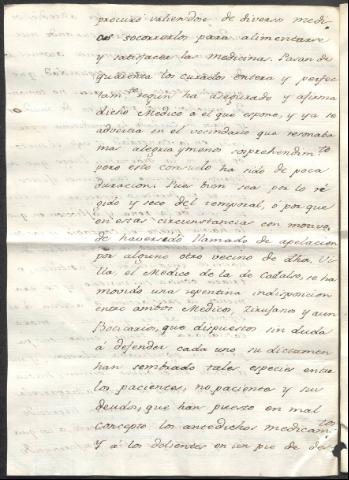 procuró valiendose de diverso medi-
os socorrerlos para alimentarse
y satisfacer la medicinas. Pasan de
quarenta los curados entera y perfec
tam.te segun ha asegurado y afirma
dicho Medico á el que expone, y ya se
advertia en el vecindario que resonaba
mas alegria y menos sorprehendim.to
pero este consuelo ha sido de poca
duracion. Pues bien sea por lo ri
gido y seco del temporal, o por que
en estas circunstancia con motivo
de haverse llamado de apelacion
por alguno otro vecino de dha. Vi
lla, el Medico de la de Cadalso, se ha
movido una repentina indisposicion
entre ambos Medicos, Zirujano y aun
Boticarios, que dispuestos sin duda
á defender cada uno su dictamen
han sembrado tales especies entre
los pacientes, no pacientes y sus
deudos, que han puesto en mal
concepto los antedichos medicam.tos
y á los dolientes en un pie de des